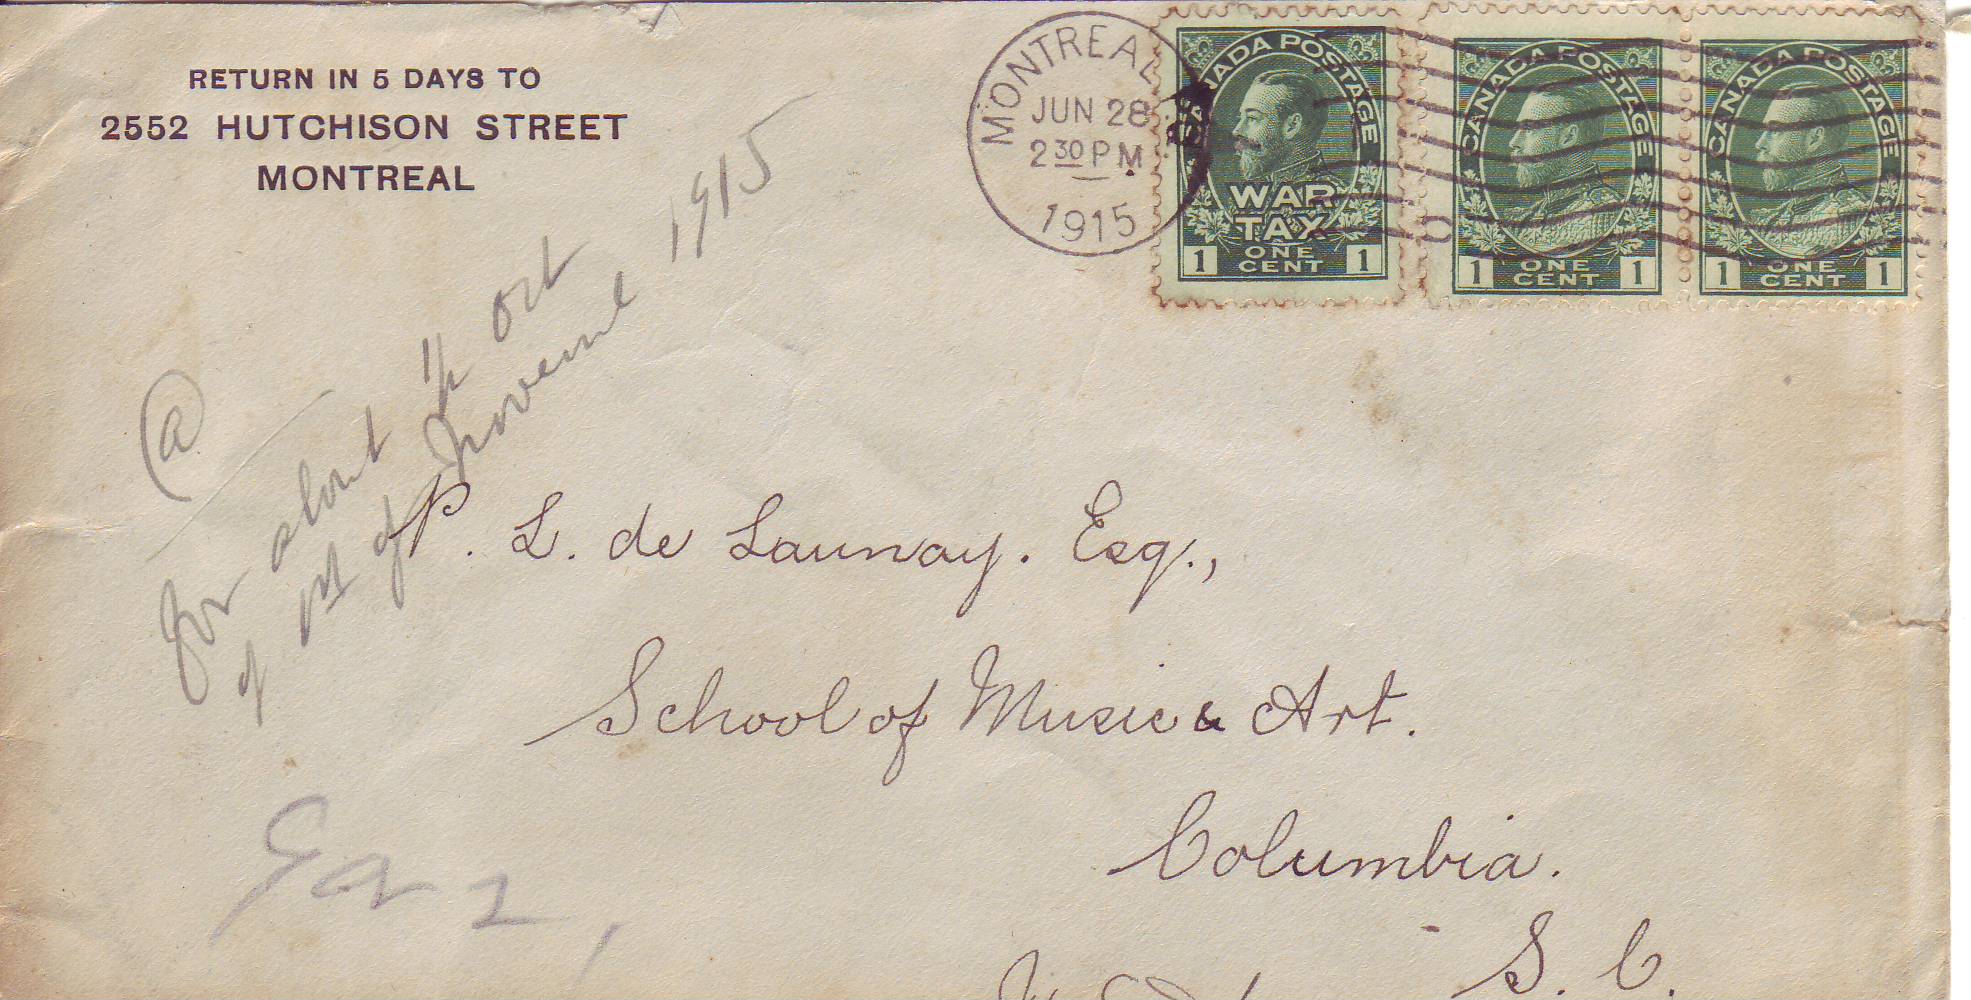 RETURN IN 5 DAYS TO
2552 HUTCHISON STREET
MONTREAL
MONTREAL
JUN 28
2 30 P M
1915
CANADA POSTAGE
WAR
TAX
ONE
CENT
1 1
CANADA POSTAGE
ONE
CENT
1 1
CANADA POSTAGE
ONE
CENT
1 1
a
for about
of 1st of
1915
P. L. de Launay. Esq.,
School of Music & Art.
Columbia.
S. C.